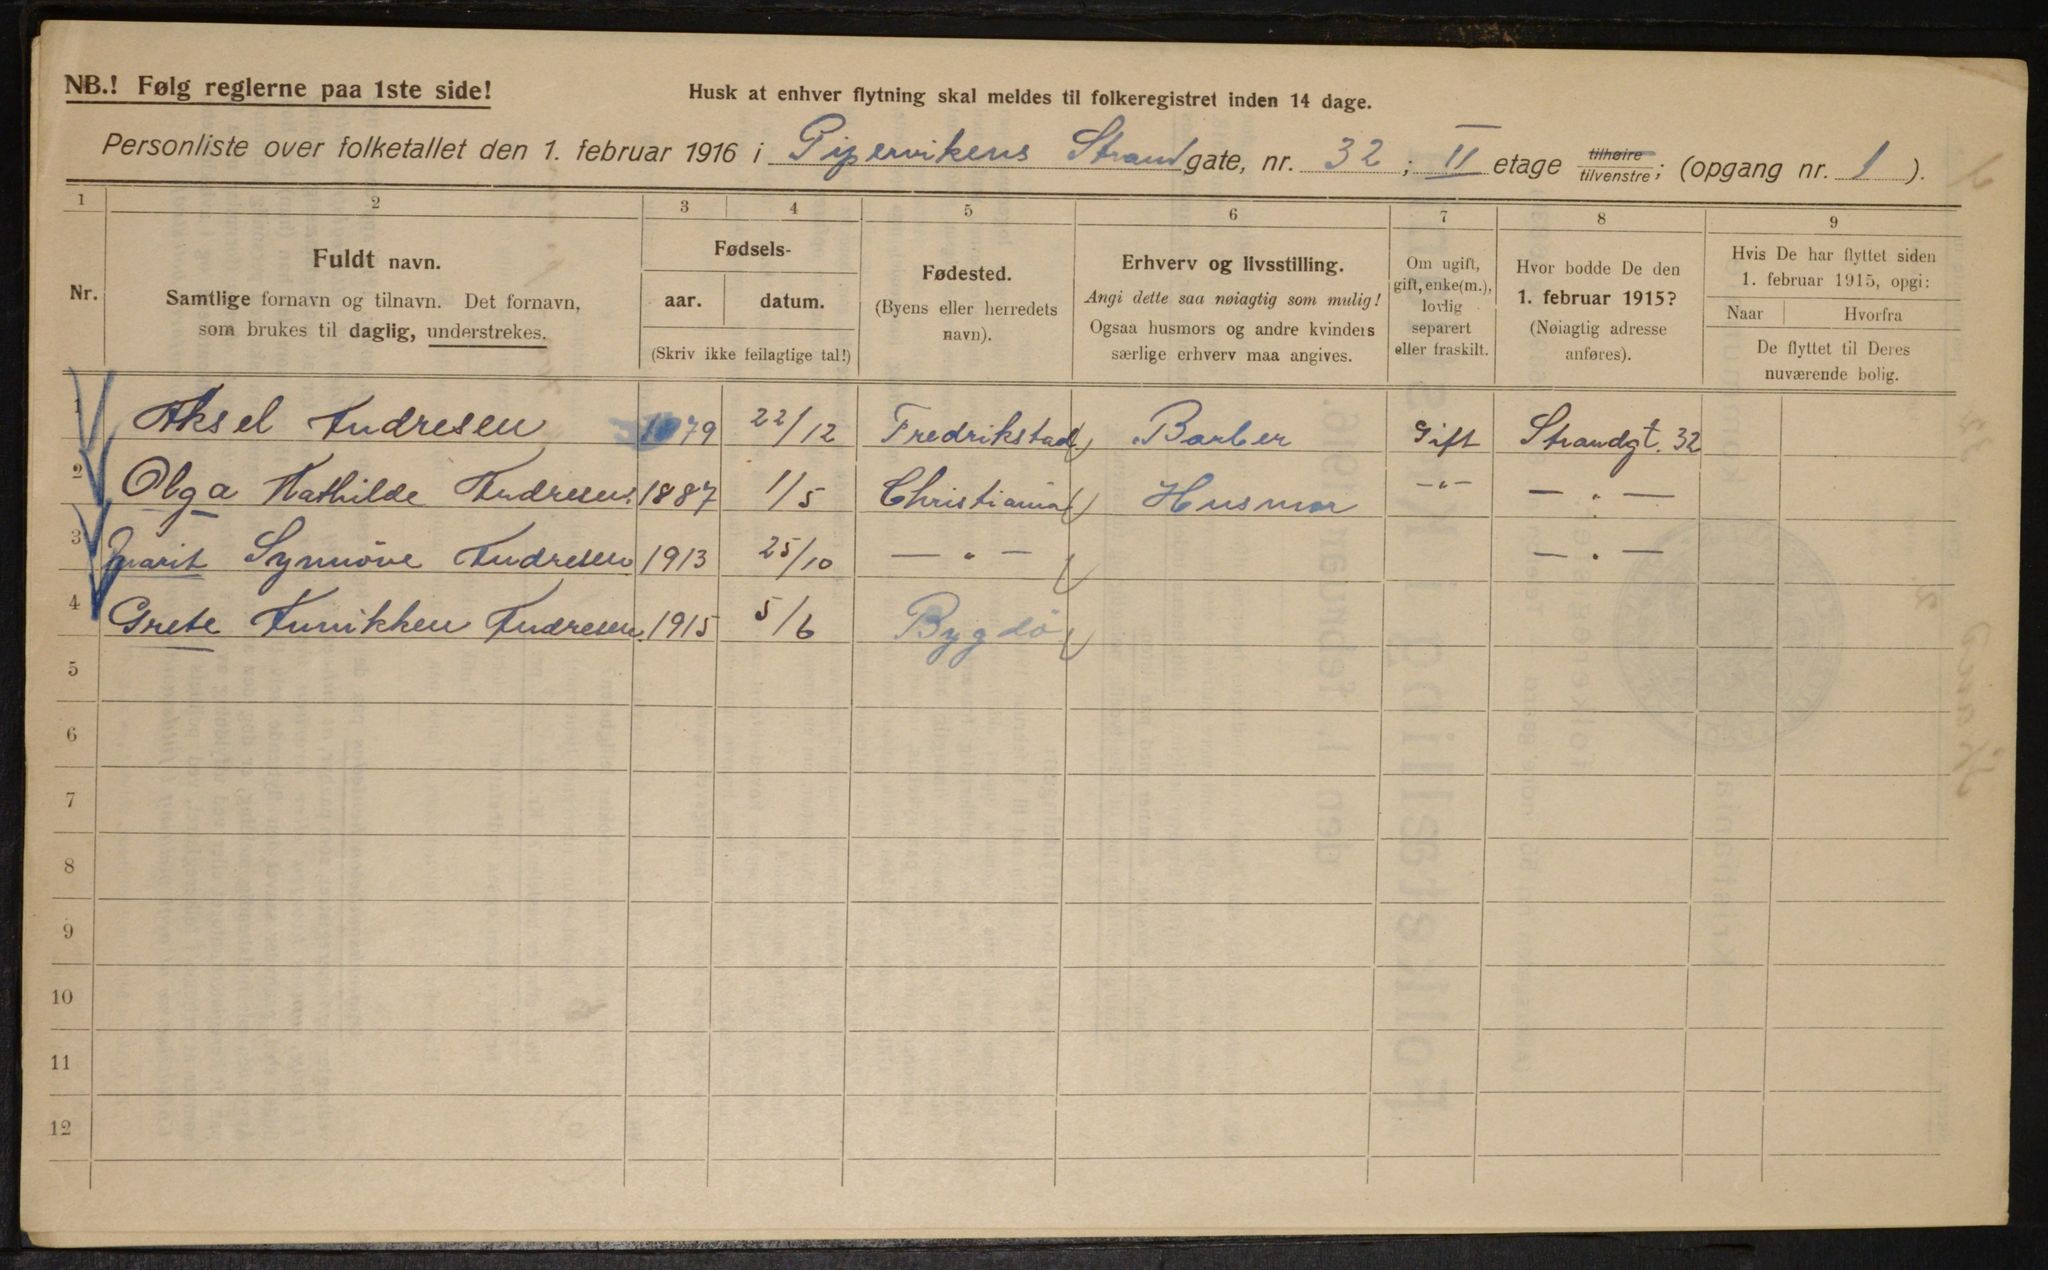 NB.! Følg reglerne paa 1ste side!
Husk at enhver flytning skal meldes til folkeregistret inden 14 dage.
Personliste over folketallet den 1. februar 1916 i Pipervikens Strand gate, nr. 32 ; II etage tilhøire tilvenstre; (opgang nr. 1 ).
1 2 3 4 5 6 7 8 9
Nr.
Fuldt navn.
Samtlige fornavn og tilnavn. Det fornavn,
som brukes til daglig, understrekes.
Fødsels-
aar. datum.
(Skriv ikke feilagtige tal!)
Fødested.
(Byens eller herredets
navn).
Erhverv og livsstilling.
Angi dette saa nøiagtig som mulig!
Ogsaa husmors og andre kvinders
særlige erhverv maa angives.
Om ugift,
gift, enke(m.),
lovlig
separert
eller fraskilt.
Hvor bodde De den
1. februar 1915?
(Nøiagtig adresse
anføres).
Hvis De har flyttet siden
1. februar 1915, opgi:
Naar Hvorfra
De flyttet til Deres
nuværende bolig.
1 Aksel Andresen 1879 22/12 Fredrikstad Barber Gift Strandgt. 32
2 Olga Mathilde Andresen 1887 1/5 Christiania Husmor -"- - " -
3 Marit Synnöve Andresen 1913 25/10 - " - - " -
4 Grete Annikken Andresen 1915 5/6 Bygdö
5
6
7
8
9
10
11
12